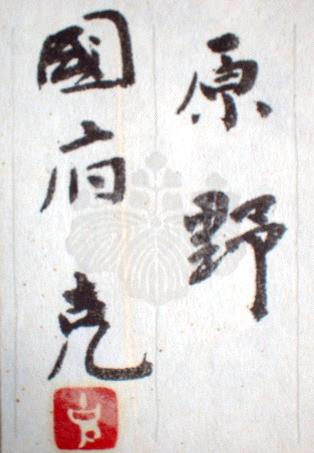 原野
國府克